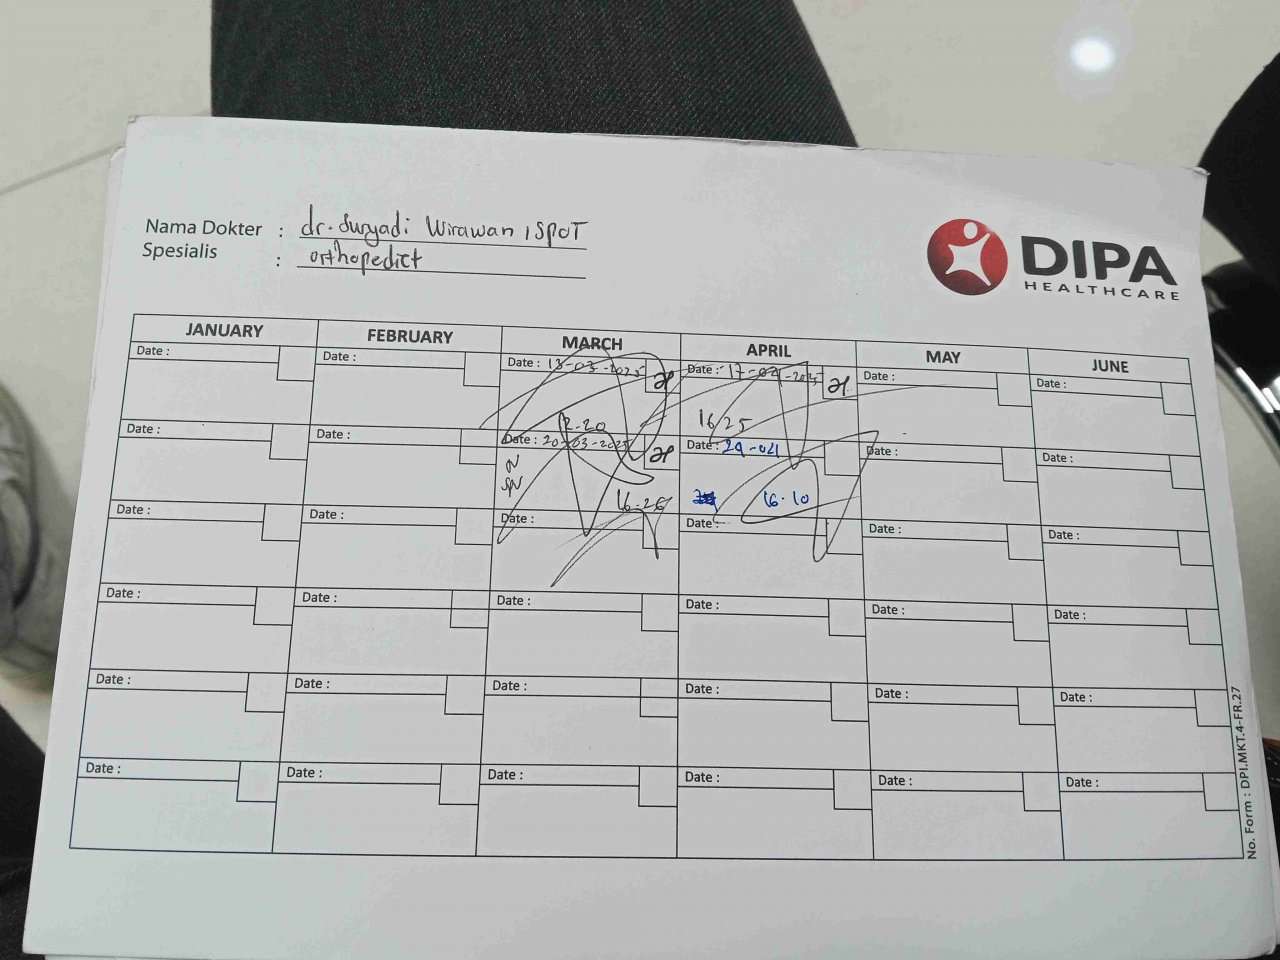 Nama Dokter : dr. Suryadi Wirawan, SpOT
Spesialis : orthopedict
DIPA
HEALTHCARE
JANUARY FEBRUARY MARCH APRIL MAY JUNE
Date : Date : Date : 13-03-2025 Date : 17-04-2025 Date : Date :
12.20 16.25
Date : Date : Date : 20-03-2025 Date : 29-04 Date : Date :
16.26 16.10
Date : Date : Date : Date : Date : Date :
Date : Date : Date : Date : Date : Date :
Date : Date : Date : Date : Date : Date :
Date : Date : Date : Date : Date : Date :
No. Form : DPI.MKT.4-FR.27